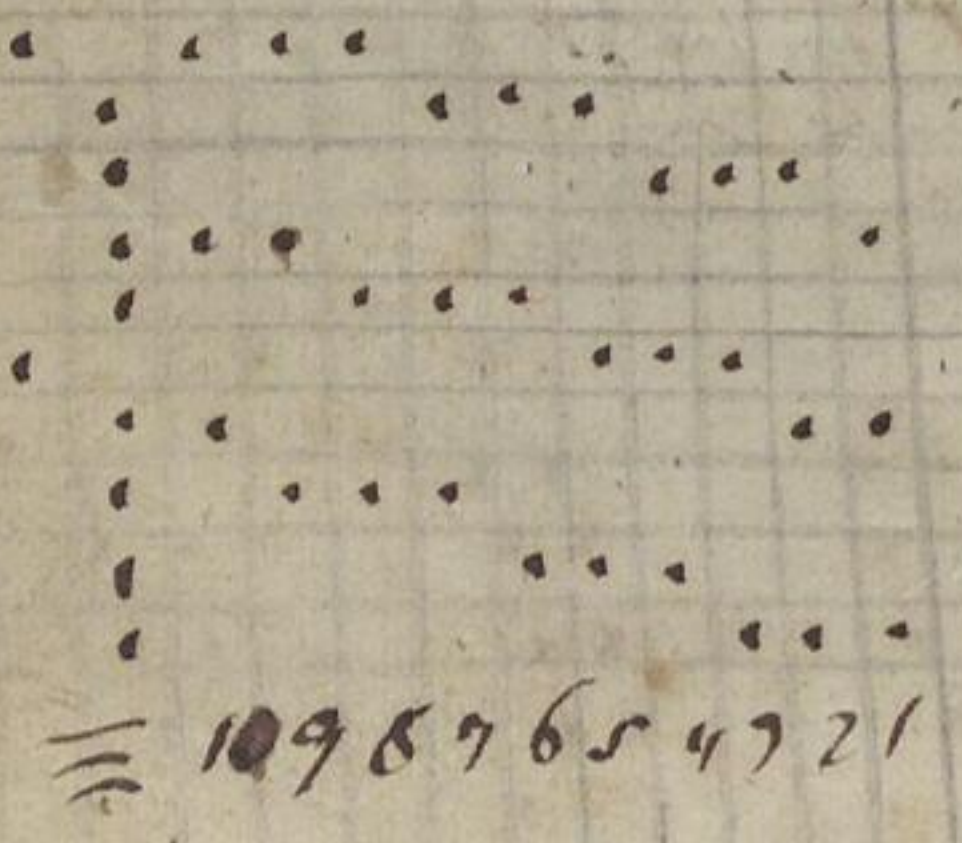 10 9 8 7 6 5 4 3 2 1